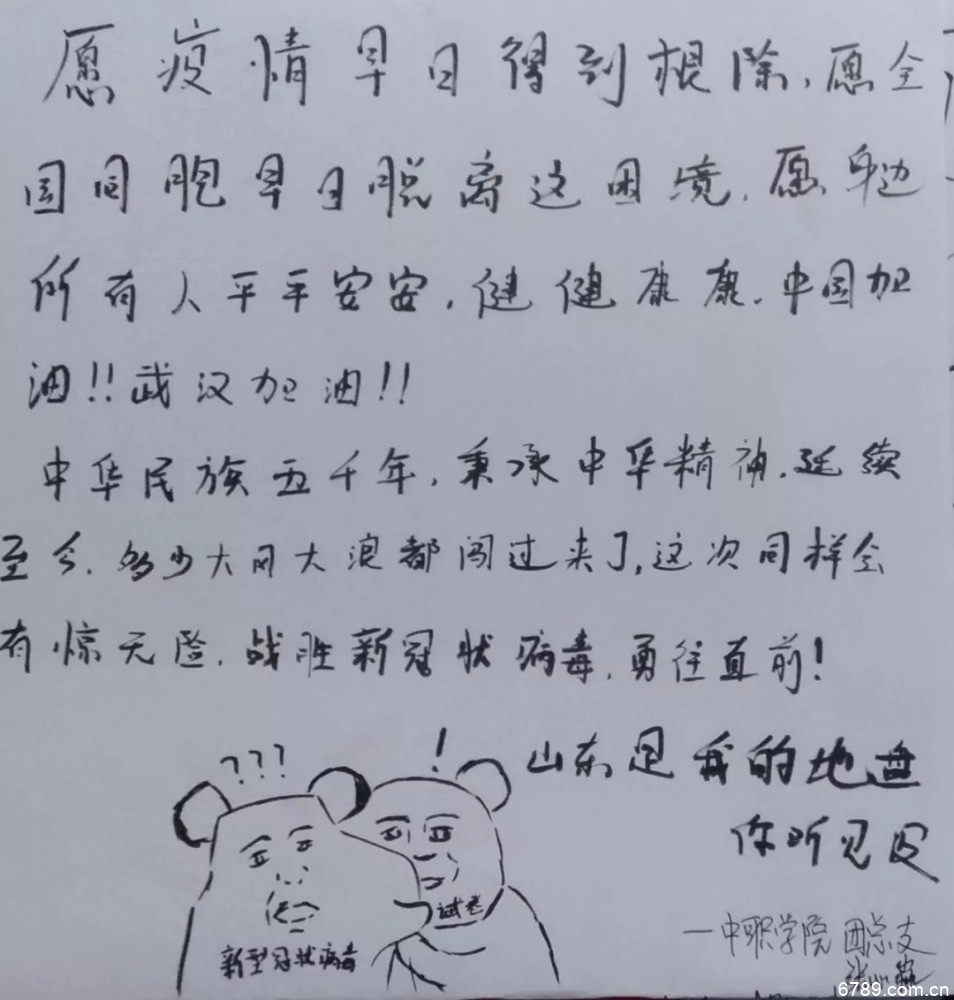 愿疫情早日得到根除,愿全
国同胞早日脱离这困境.愿身边
所有人平平安安,健健康康.中国加
油!!武汉加油!!
中华民族五千年,秉承中华精神,延续
至今.多少大风大浪都闯过来了,这次同样会
有惊无险.战胜新冠状病毒.勇往直前!
???
!
山东是我的地盘
你听见没
试卷
新型冠状病毒
—中职学院 团总支
6789.com.cn